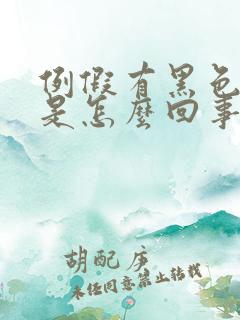 例假有黑色
是怎麼回事
胡配序
未经同意禁止转载